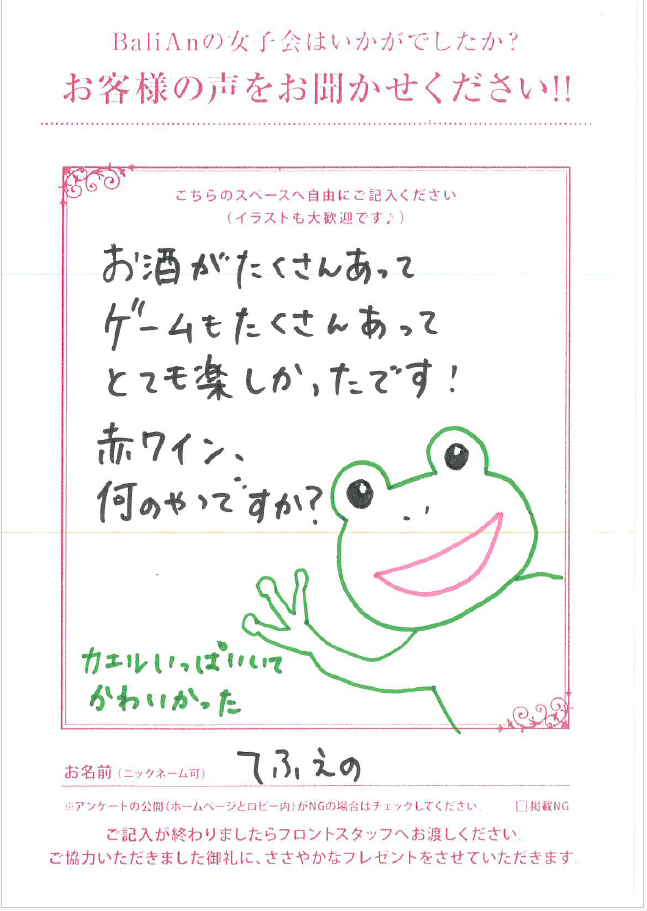 BaliAnの女子会はいかがでしたか？
お客様の声をお聞かせください!!
こちらのスペースへ自由にご記入ください
（イラストも大歓迎です♪）
お酒がたくさんあって
ゲームもたくさんあって
とても楽しかったです！
赤ワイン、
何のやつですか？
カエルいっぱいいて
かわいかった
お名前（ニックネーム可） てふえの
※アンケートの公開（ホームページとロビー内）がNGの場合はチェックしてください。 □掲載NG
ご記入が終わりましたらフロントスタッフへお渡しください。
ご協力いただきました御礼に、ささやかなプレゼントをさせていただきます。